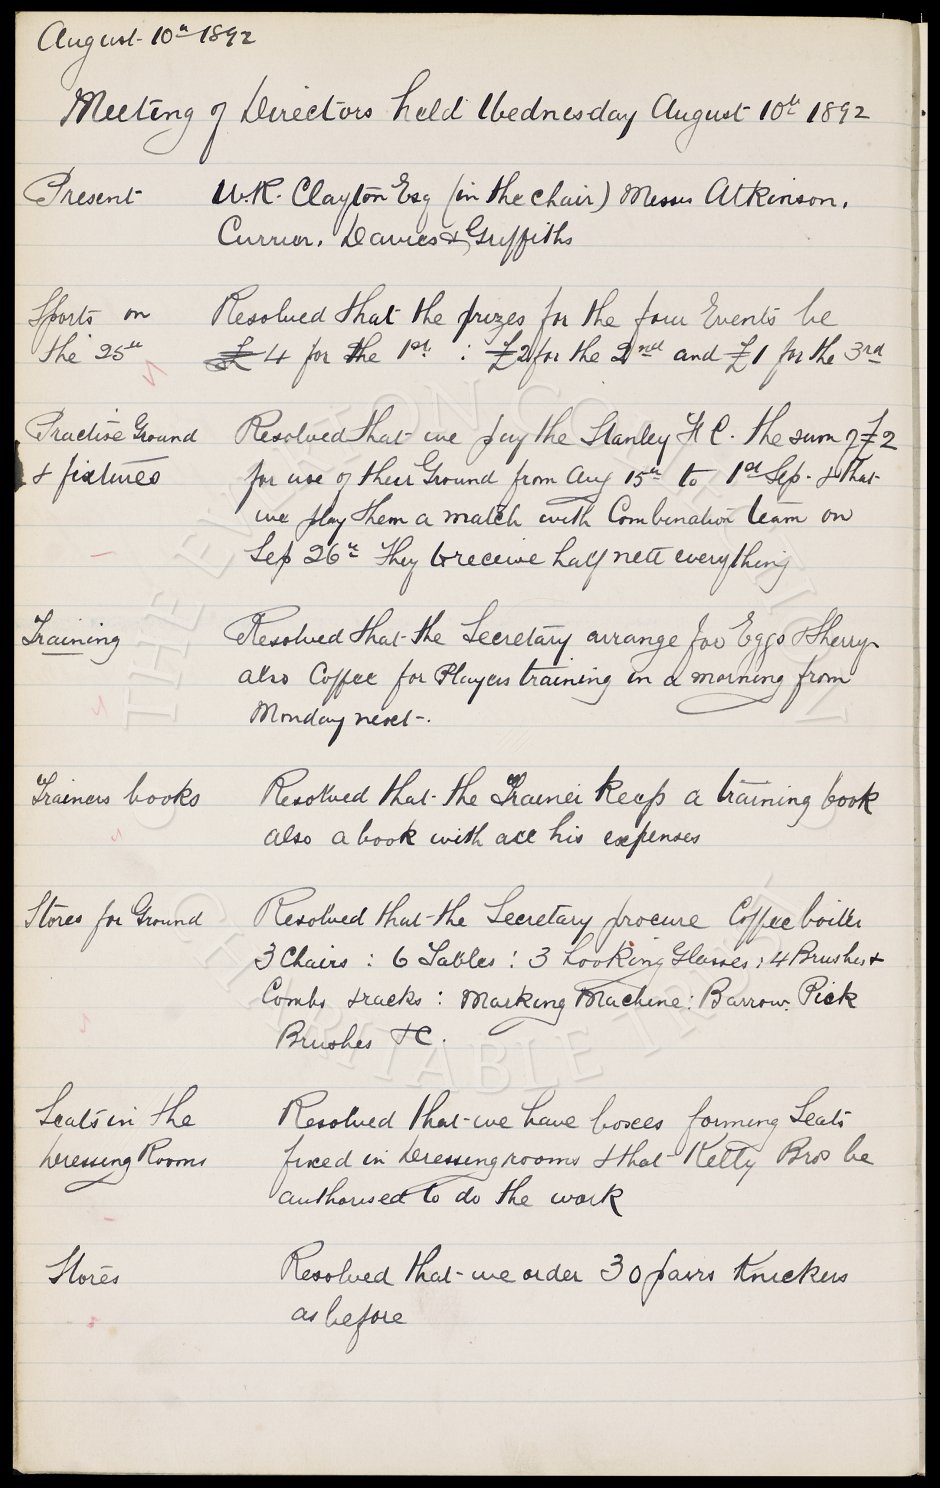 August 10th 1892
Meeting of Directors held Wednesday August 10th 1892
Present W.R. Clayton Esq (in the chair) Messrs Atkinson,
Currier, Davies & Griffiths
Sports on Resolved that the prizes for the four Events be
the 25th £4 for the 1st : £2 for the 2nd and £1 for the 3rd
Practise Ground Resolved that we pay the Stanley F C. the sum of £2
& fixtures for use of their Ground from Aug 15th to 1st Sep. & that
we play them a match with Combination team on
Sep 26th they to receive half nett everything
Training Resolved that the Secretary arrange for Eggs & Sherry
also Coffee for Players training in a morning from
Monday next.
Trainers books Resolved that the Trainer keeps a training book
also a book with all his expenses
Stores for Ground Resolved that the Secretary procure Coffee boiler
3 Chairs : 6 Tables : 3 Looking Glasses : 4 Brushes &
Combs & racks : Marking Machine : Barrow, Pick
Brushes &C.
Seats in the Resolved that we have boxes forming Seats
Dressing Rooms fixed in Dressing rooms & that Kelly Bros be
authorised to do the work
Stores Resolved that we order 30 pairs Knickers
as before
THE EVERTON COLLECTION
CHARITABLE TRUST